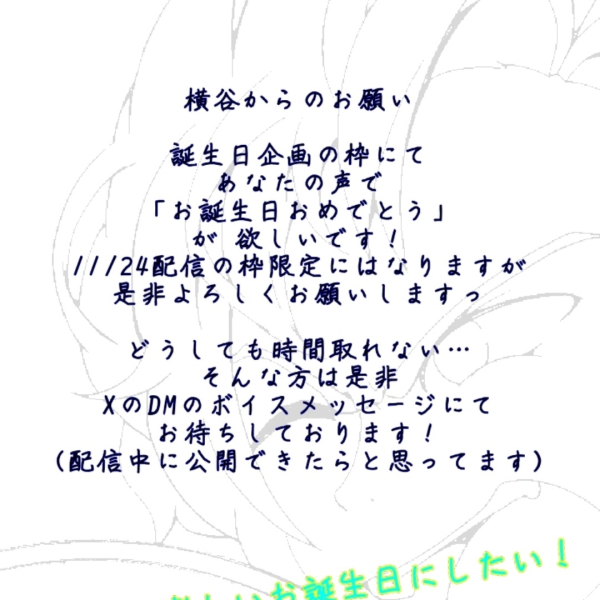 横谷からのお願い
誕生日企画の枠にて
あなたの声で
「お誕生日おめでとう」
が 欲しいです!
11/24配信の枠限定にはなりますが
是非よろしくお願いしますっ
どうしても時間取れない…
そんな方は是非
XのDMのボイスメッセージにて
お待ちしております!
(配信中に公開できたらと思ってます)
しいお誕生日にしたい!